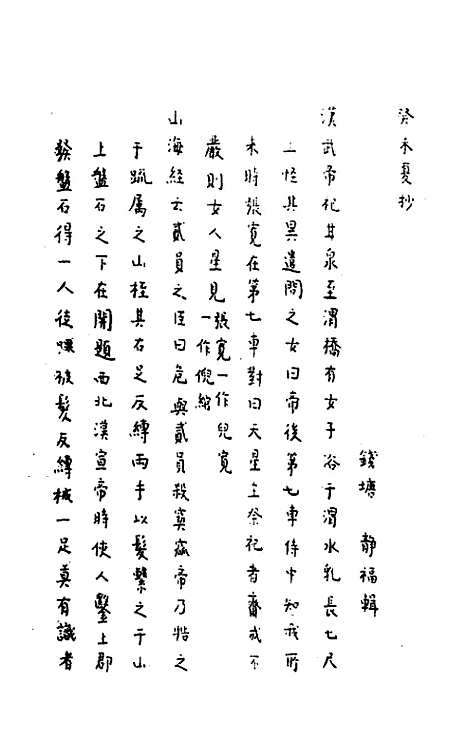 癸未夏抄
錢塘　靜福輯
漢武帝祀甘泉至渭橋有女子浴于渭水乳長七尺
上怪其異遣問之女曰帝後第七車侍中知我所
來時張寬在第七車對曰天星主祭祀者齋戒不
嚴則女人星見張寬一作兒寬一作倪綰
山海經云貳員之臣曰危與貳員殺窫窳帝乃牿之
于疏属之山桎其右足反縛兩手以髮繫之于山
上盤石之下在開題西北漢宣帝時使人鑿上郡
發盤石得一人徒裸被髮反縛械一足莫有識者